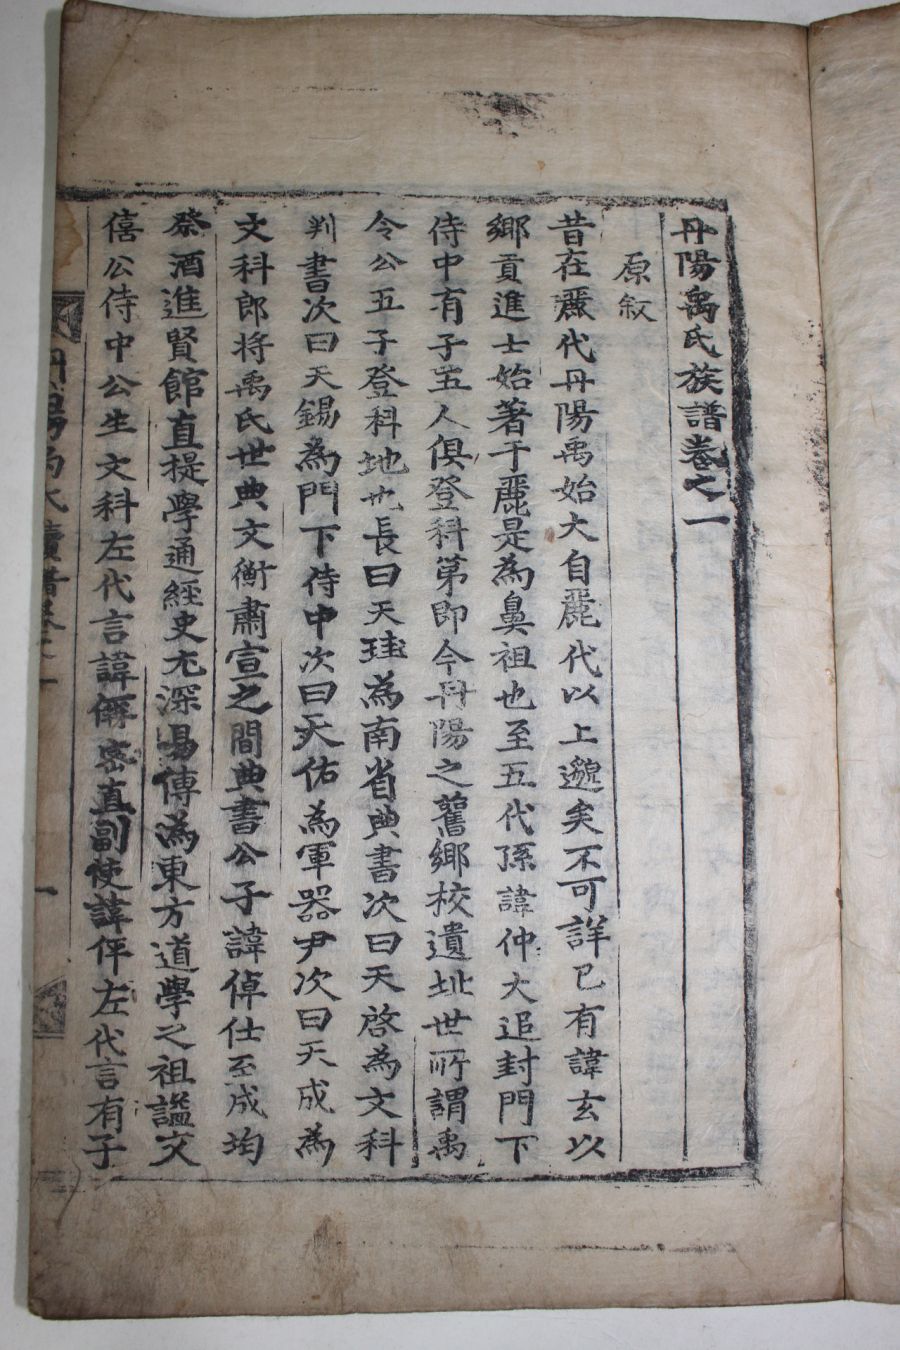 丹陽禹氏族譜卷之一
原叙
昔在麗代丹陽禹始大自麗代以上邈矣不可詳已有諱玄以
鄕貢進士始著于麗是為鼻祖也至五代孫諱仲大追封門下
侍中有子五人俱登科第即今丹陽之舊鄕校遺址世所謂禹
令公五子登科地也長曰天珪為南省典書次曰天啓為文科
判書次曰天錫為門下侍中次曰天佑為軍器尹次曰天成為
文科郎将禹氏世典文衡肅宣之間典書公子諱倬仕至成均
祭酒進賢館直提學通經史尤深易傳為東方道學之祖謚文
僖公侍中公生文科左代言諱偁密直副使諱伻左代言有子
丹陽禹氏譜卷之一
一